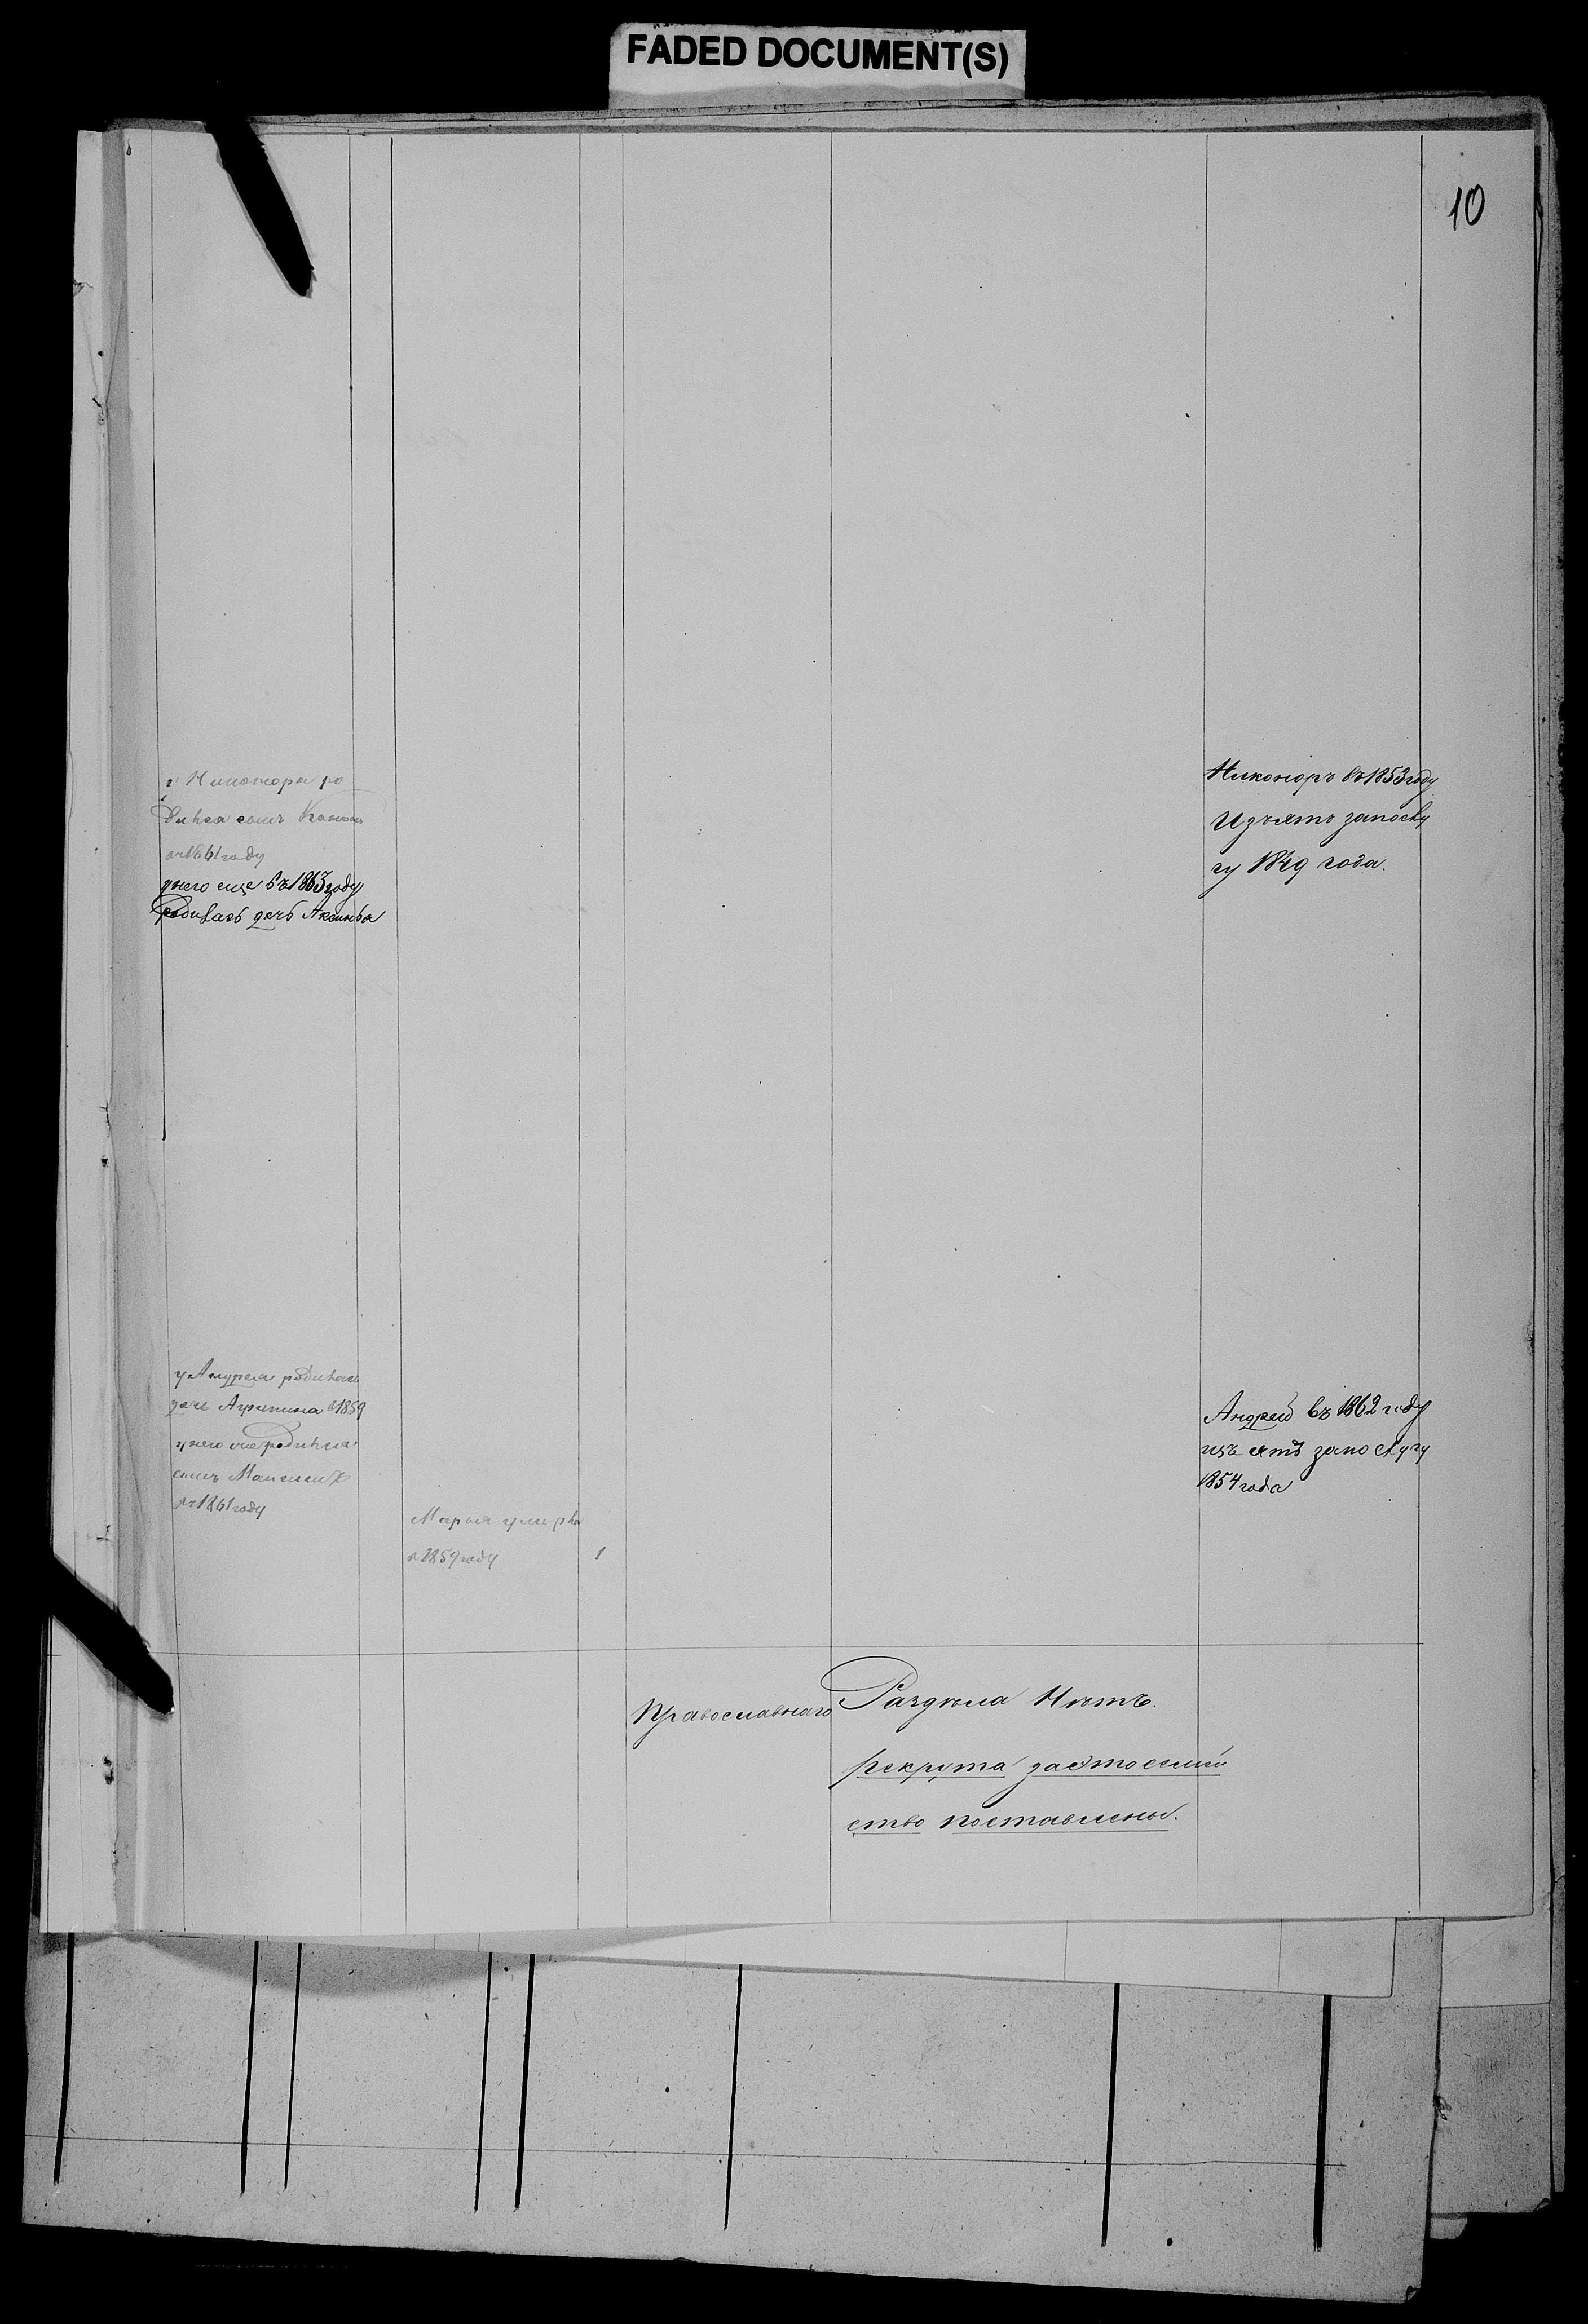 FADED DOCUMENT(S)
10
у Никонора ро
дился сынъ Конон
въ 1861 году
унего еще въ 1863 году
родилась дочь Аксинья
Никоноръ въ 1853 году
Изъятъ запослу
гу 1849 года.
у Андрея родилась
дочь Агрипина в 1859
унего еще родился
сынъ Максим
въ 1861 году
Марья умерла
в 1859 году
1
Андрей въ 1862 году
изъятъ запослугу
1854 года
Православнаго
Раздѣла Нѣтъ.
рекрута
ство поставлены.